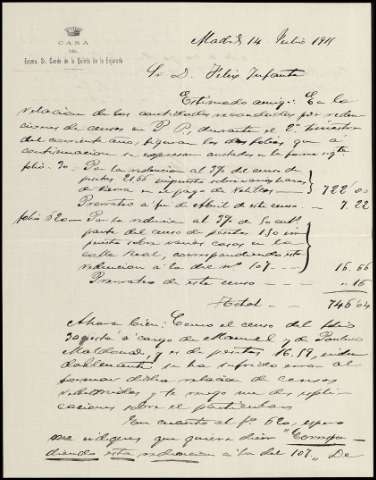 CASA
DEL
Excmo. Sr. Conde de la Quinta de la Enjarada
Madrid, 14 Julio 1911
Sr D. Felix Infante
Estimado amigo: En la
relacion de las cantidades recaudadas por reden
ciones de censos en P. P, durante el 2º trimestre
del corriente año, figuran los dos folios que a
continuacion se expresan anotados en la forma sigte
folio 30 Por la redencion al 3% del censo de
pesetas 21.66 sobre varas
de tierra en pago de 722,00
Prorrateo a fin de Abril de este censo 7.22
folio 520 Por la redencion al 3% de
parte del censo de pesetas 1.50 im
puesto sobre varias casas en la
calle Real, correspondiendo esta
redencion a la del nº 107 16.66
Prorrateo de este censo 16
Total 746,04
Ahora bien: Como el censo del folio
30 a cargo de Manuel y de Paulino
Maldonado, y es de pesetas 16.58, indu
dablemente se ha sufrido error al
formar dicha relacion de censos
redimidos y te ruego me des expli
caciones sobre el particular.
En cuanto al fº 520, espero
me indiques que quiere decir "Correspon
diendo esta redencion a la del 107". De